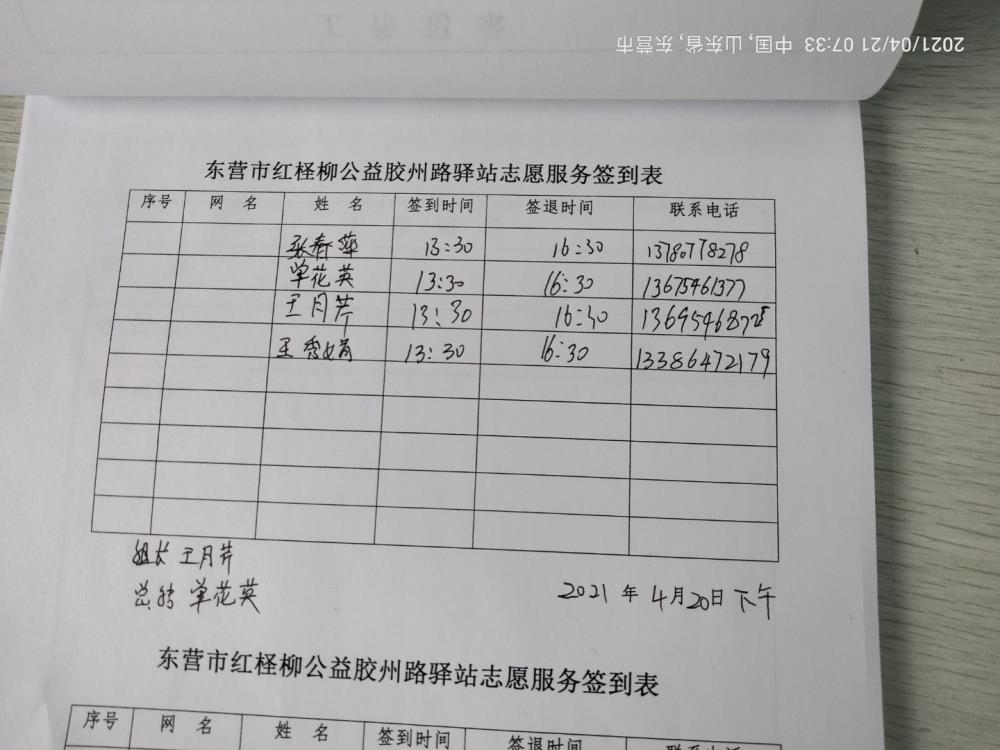 2021/04/21 07:33 中国,山东省,东营市
东营市红柽柳公益胶州路驿站志愿服务签到表
序号 网 名 姓 名 签到时间 签退时间 联系电话
张春萍 13:30 16:30 13780778278
单花英 13:30 16:30 13675461377
王月芹 13:30 16:30 13695468725
王秀娟 13:30 16:30 13386472179
组长 王月芹
总转 单花英
2021 年 4月20日 下午
东营市红柽柳公益胶州路驿站志愿服务签到表
序号 网 名 姓 名 签到时间 签退时间 联系电话